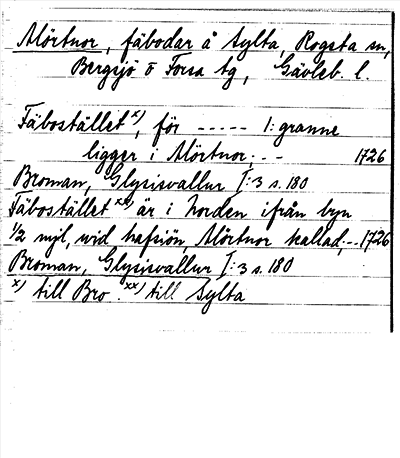 Mörtnor, fäbodar å Sylta, Rogsta sn,
Bergsjö o Forsa tg, Gävleb. l.
Fäbostället x), för ----- 1: granne
ligger i Mörtnor; - - 1726
Broman, Glysisvallur I:3 s. 180
Fäbostället xx) är i Norden ifrån byn
1/2 mjl, wid hafsiön, Mörtnor kallad; -- 1726
Broman, Glysisvallur I:3 s. 180
x) till Bro. xx) till Sylta